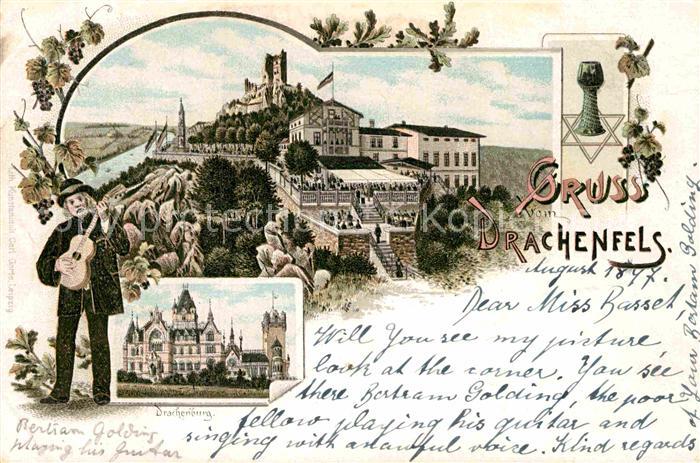 GRUSS
vom
DRACHENFELS.
August 1897.
Dear Miss Basset
Will You see my picture
look at the corner. You see
there Bertram Golding, the poor
fellow playing his guitar and
singing with an awful voice. Kind regards
Your Golding.
Drachenburg.
Bertram Golding
playing his Guitar
Carl Garte, Leipzig